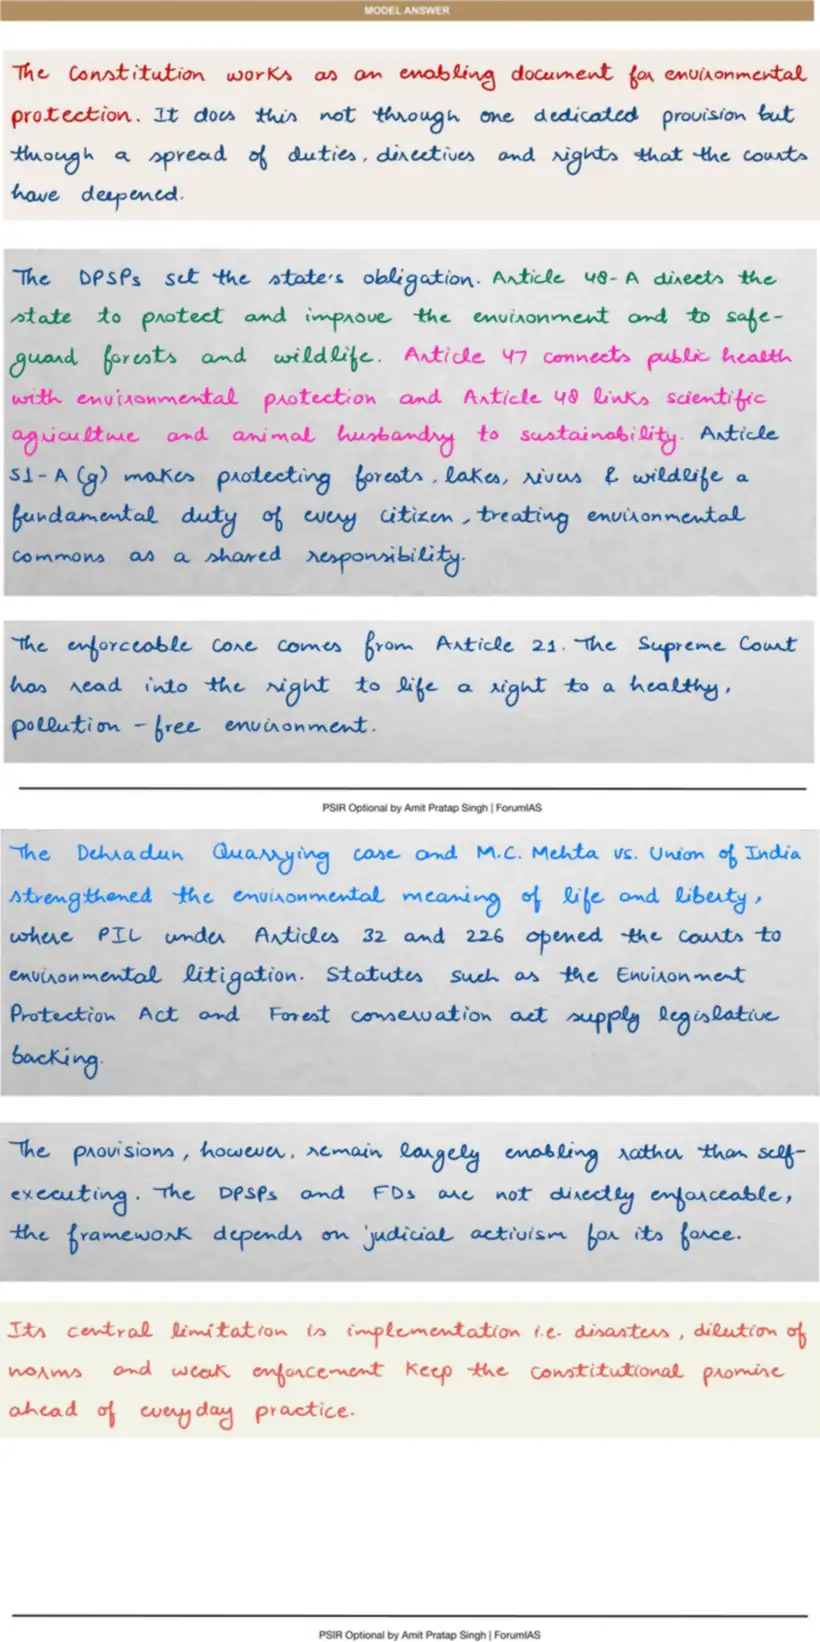 MODEL ANSWER
The Constitution works as an enabling document for environmental
protection. It does this not through one dedicated provision but
through a spread of duties, directives and rights that the courts
have deepened.
The DPSPs set the state's obligation. Article 48-A directs the
state to protect and improve the environment and to safe-
guard forests and wildlife. Article 47 connects public health
with environmental protection and Article 48 links scientific
agriculture and animal husbandry to sustainability. Article
51-A (g) makes protecting forests, lakes, rivers & wildlife a
fundamental duty of every citizen, treating environmental
commons as a shared responsibility.
The enforceable core comes from Article 21. The Supreme Court
has read into the right to life a right to a healthy,
pollution-free environment.
PSIR Optional by Amit Pratap Singh | ForumIAS
The Dehradun Quarrying case and M.C. Mehta vs. Union of India
strengthened the environmental meaning of life and liberty,
where PIL under Articles 32 and 226 opened the courts to
environmental litigation. Statutes such as the Environment
Protection Act and Forest conservation act supply legislative
backing.
The provisions, however, remain largely enabling rather than self-
executing. The DPSPs and FDs are not directly enforceable,
the framework depends on judicial activism for its force.
Its central limitation is implementation i.e. disasters, dilution of
norms and weak enforcement keep the constitutional promise
ahead of everyday practice.
PSIR Optional by Amit Pratap Singh | ForumIAS